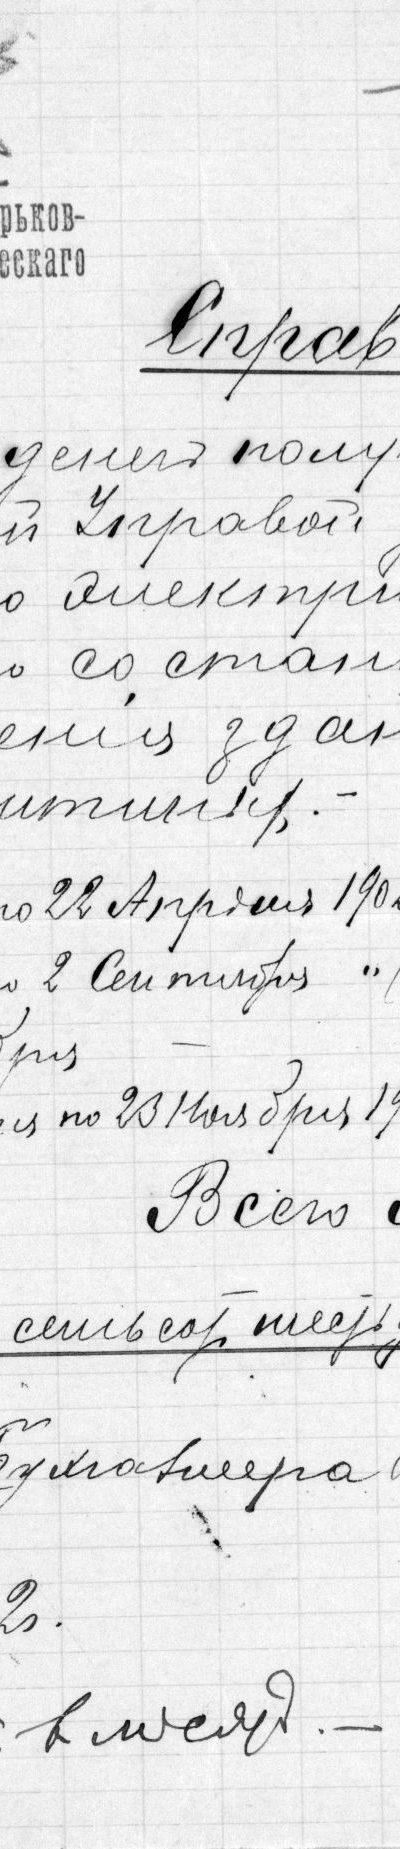 рьков-
ескаго
Справ
денегъ полу
й Управой
о электри
о состан
енія здан
по 22 Апрѣля 190
о 2 Сентября "
бря —
ля по 23 Ноября 19
Всего
семьсот шест
Бухгалтера
2г.
в месяц. —